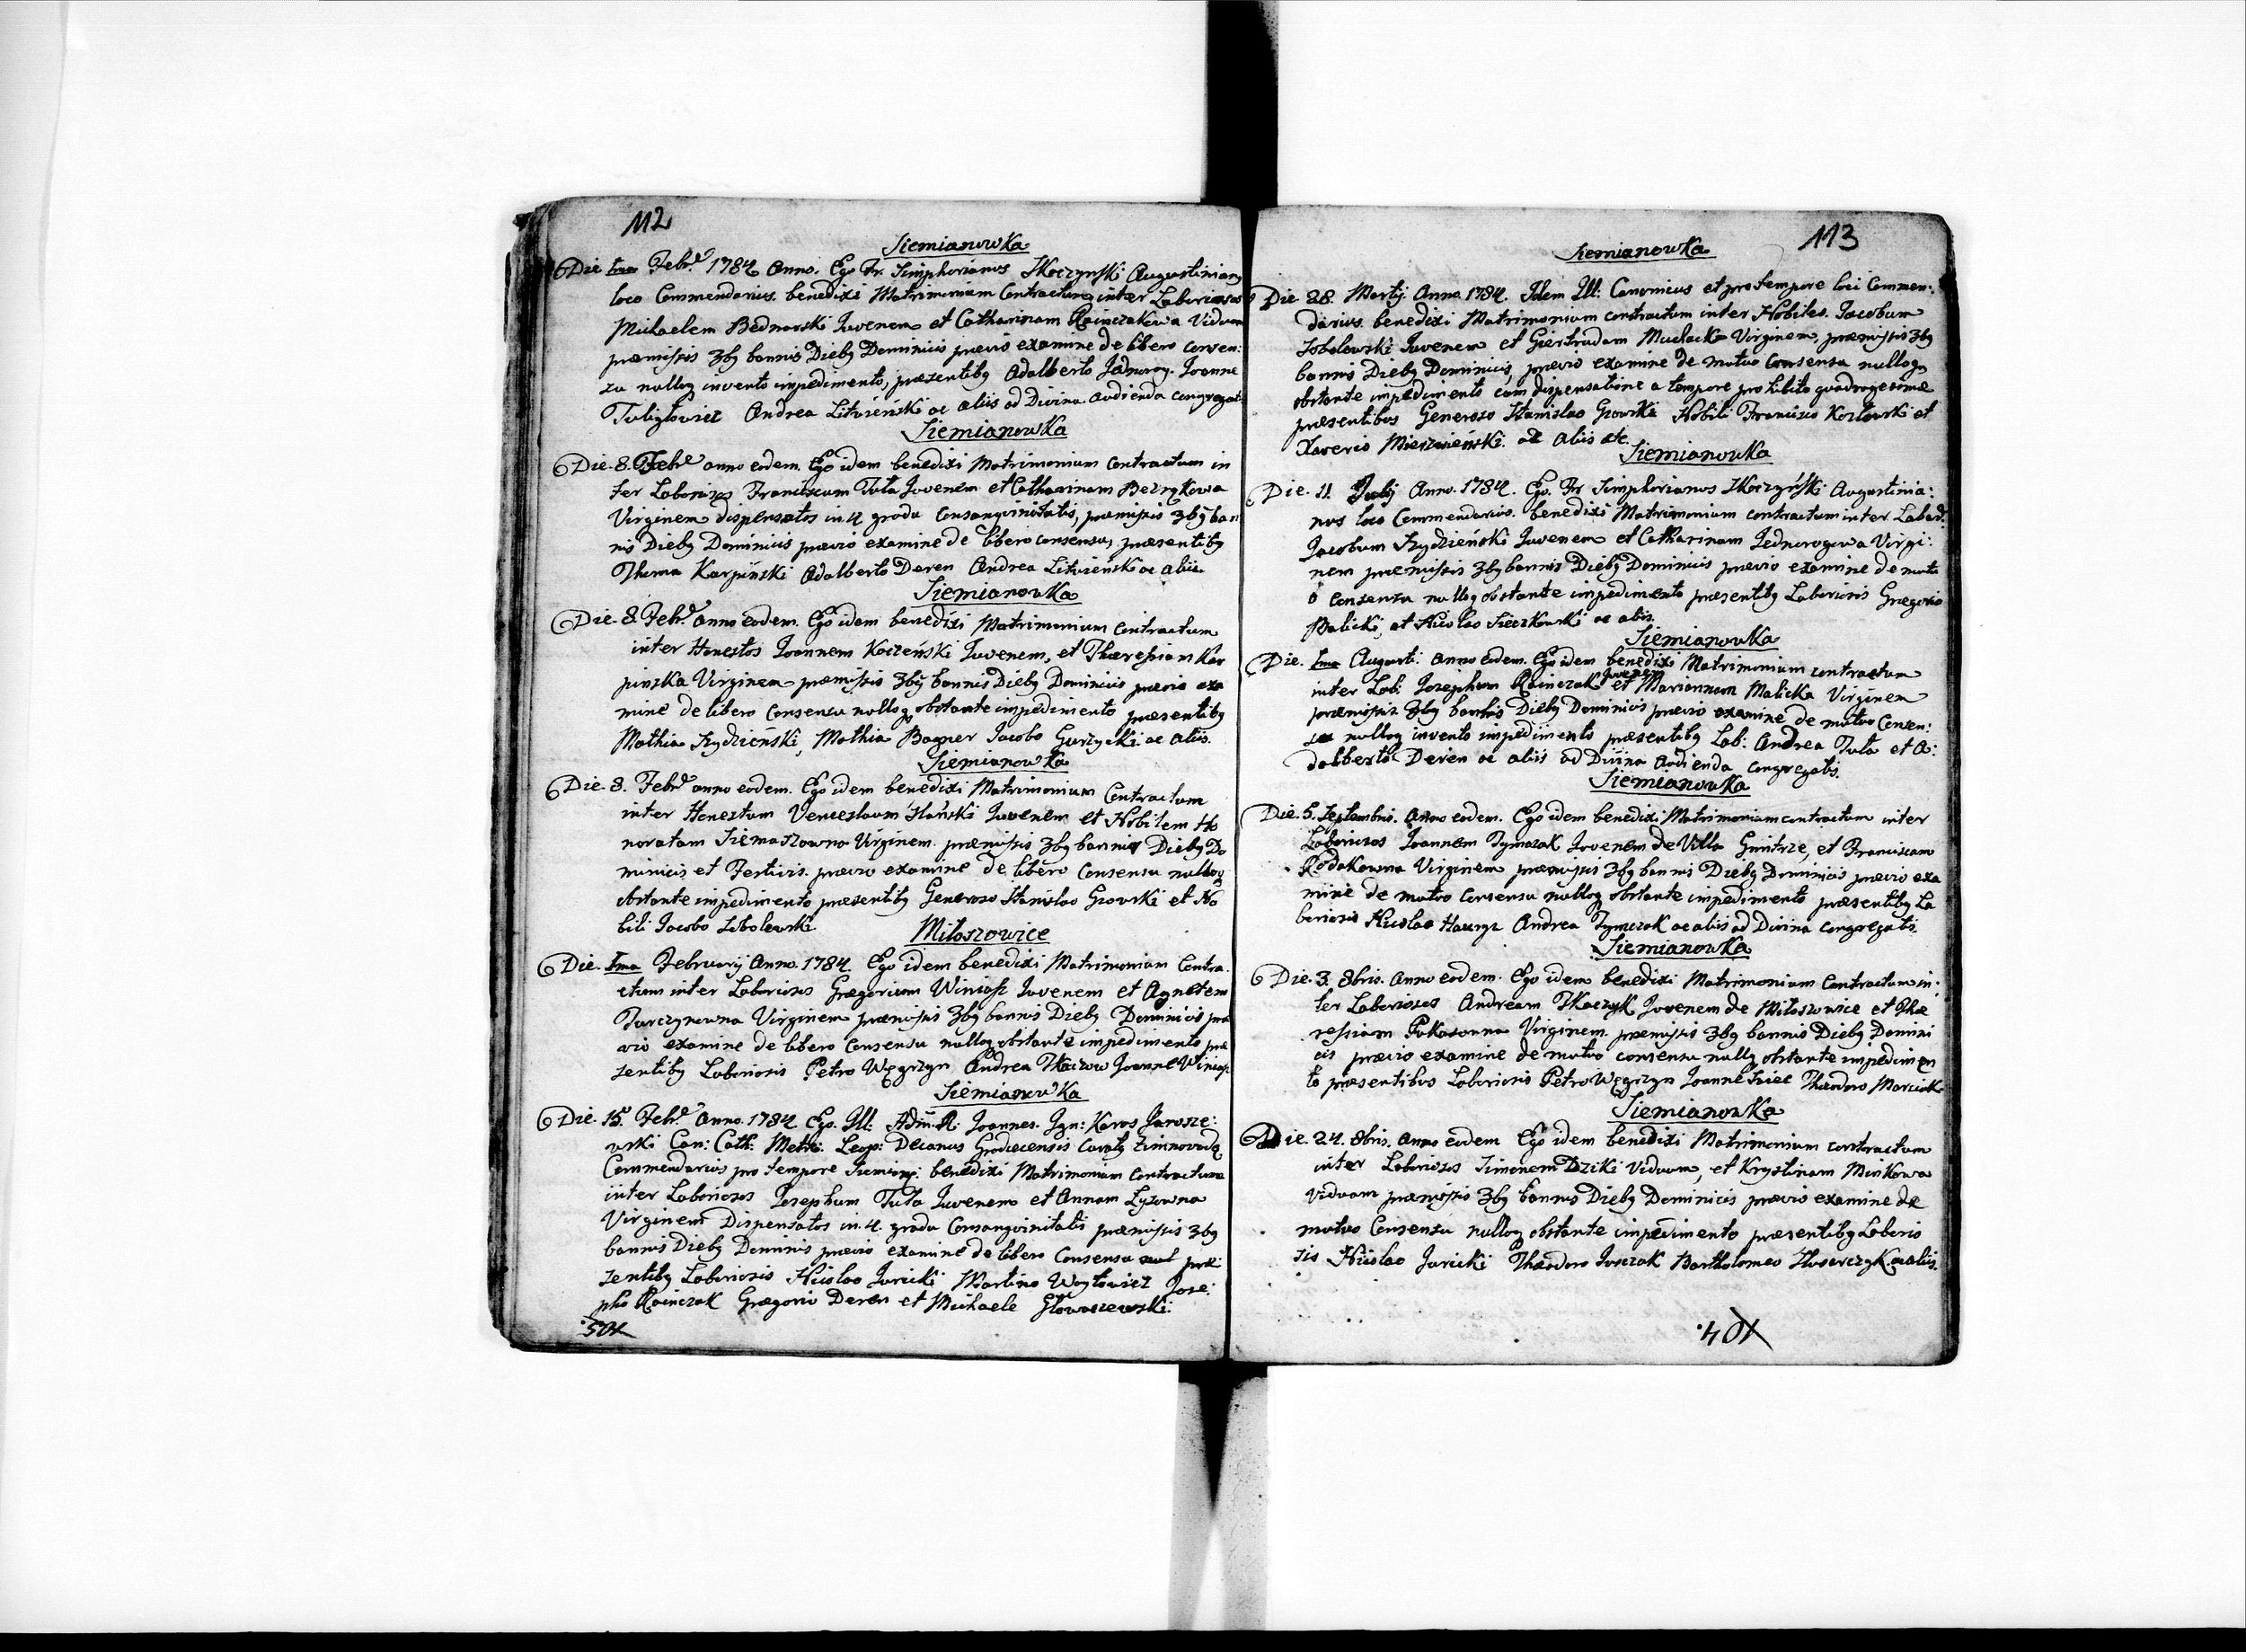 112
Siemianowka
Die 1ma Febr. 1784 Anno. Ego Fr. Simphorianus Skoczynski Augustinianq
loco Commendarius. benedixi Matrimonium Contractum inter Laboriosos
Michaelem Bednarski Juvenem et Catharinam Rainczakowa Viduam
præmissis 3bq bannis Diebq Dominicis prævio examine de libero Consen:
zu nulloq invento impedimento, præsentibq Adalberto Jednorog. Joanne
Andrea Litwieński ac aliis ad Divina audienda congregatis
Siemianowka
Die. 8. Febr. anno eodem. Ego idem benedixi Matrimonium Contractum in
ter Laborisos Franciscum Tuta Juvenem et Catharinam
Virginem dispensatos in 4 gradu Consangvinitatis, præmissis 3bq ban
nis Diebq Dominicis prævio examine de libero consensu, præsentibq
Thoma Karpiński Adalberto Deren Andrea Litwieński ac aliis
Siemianowka
Die. 8. Febr. anno eodem. Ego idem benedixi Matrimonium Contractum
inter Honestos Joannem Koczeński Juvenem, et Thæressiam Kar
pinska Virginem præmissis 3bq bannis Diebq Dominicis prævio exa
mine de libero Consensu nulloq obstante impedimento præsentibq
Mathia Szydzieński, Mathia Bagner Jacobo Gurzycki ac aliis.
Siemianowka
Die. 8. Febr. anno eodem. Ego idem benedixi Matrimonium Contractum
inter Honestum Venceslaum Juvenem et Nobilem Ho
noratam Siemaszowna Virginem. præmissis 3bq bannis Diebq Do
minicis et Festivis. prævio examine de libero Consensu nulloq
obstante impedimento præsentibq Generoso Stanislao Growski et No
bili Jacobo Sobolewski
Miloszowice
Die. 1ma Februarij Anno. 1784 Ego idem benedixi Matrimonium Contra.
ctum inter Laboriosos Gregorium Winiasz Juvenem et Agnetem
Turczynowna Virginem præmissis 3bq bannis Diebq Dominicis præ
vio examine de libero Consensu nulloq obstante impedimento præ
sentibq Laboriosis Petro Węgrzyn Andrea Joanne Winiasz
Siemianowka
Die. 15. Febr. Anno. 1784 Ego. Ill: Adm: R. Joannes. Ign: Karos Jarosze:
wski Can: Cath: Metr: Leop: Decanus Grodecensis Curatq Zimnovodq
Commendarius pro tempore benedixi Matrimonium Contractum
inter Laboriosos Josephum Tuta Juvenem et Annam Lysowna
Virginem Dispensatos in. 4. gradu Consangvinitatis præmissis 3bq
bannis Diebq Dominis prævio examine de libero Consensu præ
sentibq Laboriosis Nicolao Juricki Martino Woytowicz Jose:
pho Rainczak Gregorio Deren et Michaele Glowaczewski.
113
Siemianowka
Die 28. Martij. Anno. 1784. Idem Ill: Canonicus et pro tempore loci Commen:
darius. benedixi Matrimonium contractum inter Nobiles. Jacobum
Sobolewski Juvenem et Giertrudam Virginem, præmissis 3bq
bannis Diebq Dominicis, prævio examine de mutuo Consensu nulloq
obstante impedimento cum dispensatione a tempore prohibito quadragesimæ
præsentibus Generoso Stanislao Growski Nobili Francisco Kozlowski et
Xaverio ac Aliis etc.
Siemianowka
Die. 11 Julij Anno. 1784. Ego. Fr Simphorianus Skoczyński Augustinia:
nus loco Commendarius. benedixi Matrimonium contractum inter Labor.
Jacobum Szydzieński Juvenem et Catharinam Jednorogowa Virgi:
nem præmissis 3bq bannis Diebq Dominicis prævio examine de mutu
o Consensu nulloq obstante impedimento præsentibq Laboriosis Gregorio
Balicki, et Nicolao Sieczkowski ac aliis.
Siemianowka
Die. 1ma Augusti. anno eodem. Ego idem benedixi Matrimonium contractum
inter Lab: Josephum Rainczak Juvenem et Mariannam Malicka Virginem
præmissis 3bq bannis Diebq Dominicis prævio examine de mutuo Consen:
su nulloq invento impedimento præsentibq Lab: Andrea Tuta et A:
dalberto Deren ac aliis ad Divina Audienda congregatis.
Siemianowka
Die. 5. Septembris. Anno eodem. Ego idem benedixi Matrimonium contractum inter
Laboriosos Joannem Tymczak Juvenem de Villa et Franciscam
Rodakowna Virginem præmissis 3bq bannis Diebq Dominicis prævio exa
mine de mutuo Consensu nulloq obstante impedimento præsentibq La
boriosis Nicolao Andrea Tymczak ac aliis ad Divina congregatis.
Siemianowka
Die. 3. 8bris. Anno eodem. Ego idem benedixi Matrimonium Contractum in:
ter Laboriosos Andream Tkaczyk Juvenem de Miloszowice et Thæ
ressiam Pukasowna Virginem. præmissis 3bq bannis Diebq Domini
cis prævio examine de mutuo consensu nulloq obstante impedimen
to præsentibus Laboriosis Petro Węgrzyn Joanne Theodoro
Siemianowka
Die. 24. 8bris. anno eodem Ego idem benedixi Matrimonium contractum
inter Laboriosos Simonem Dziki Viduum, et Krystinam Minkowa
viduam præmissis 3bq bannis Diebq Dominicis prævio examine de
mutuo Consensu nulloq obstante impedimento præsentibq Laborio
sis Nicolao Juricki Theodoro Jurczak Bartholomeo ac aliis.
104.